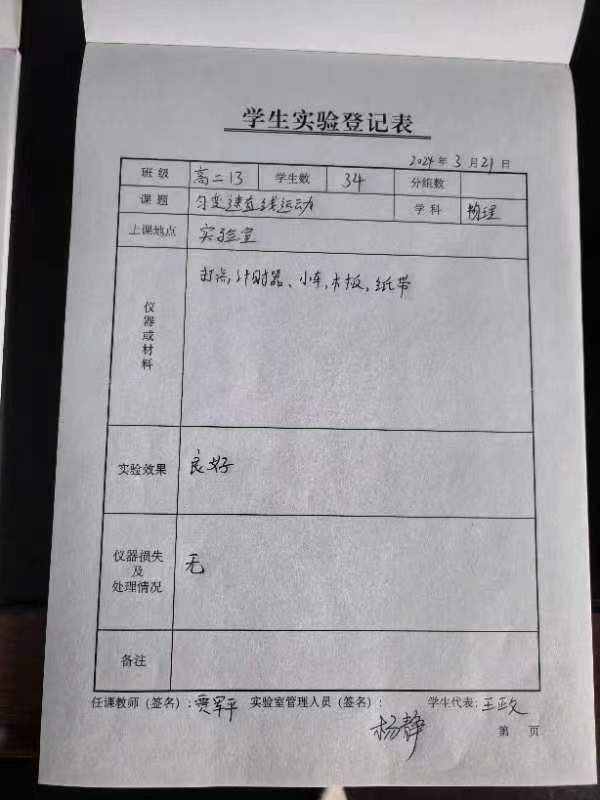 学生实验登记表
2024年3月21日
班级 高二13 学生数 34 分组数
课题 匀变速直线运动 学科 物理
上课地点 实验室
仪器或材料 打点计时器、小车、木板、纸带
实验效果 良好
仪器损失
及
处理情况 无
备注
任课教师(签名):贾军平 实验室管理人员(签名): 学生代表:王政
杨静
第 页